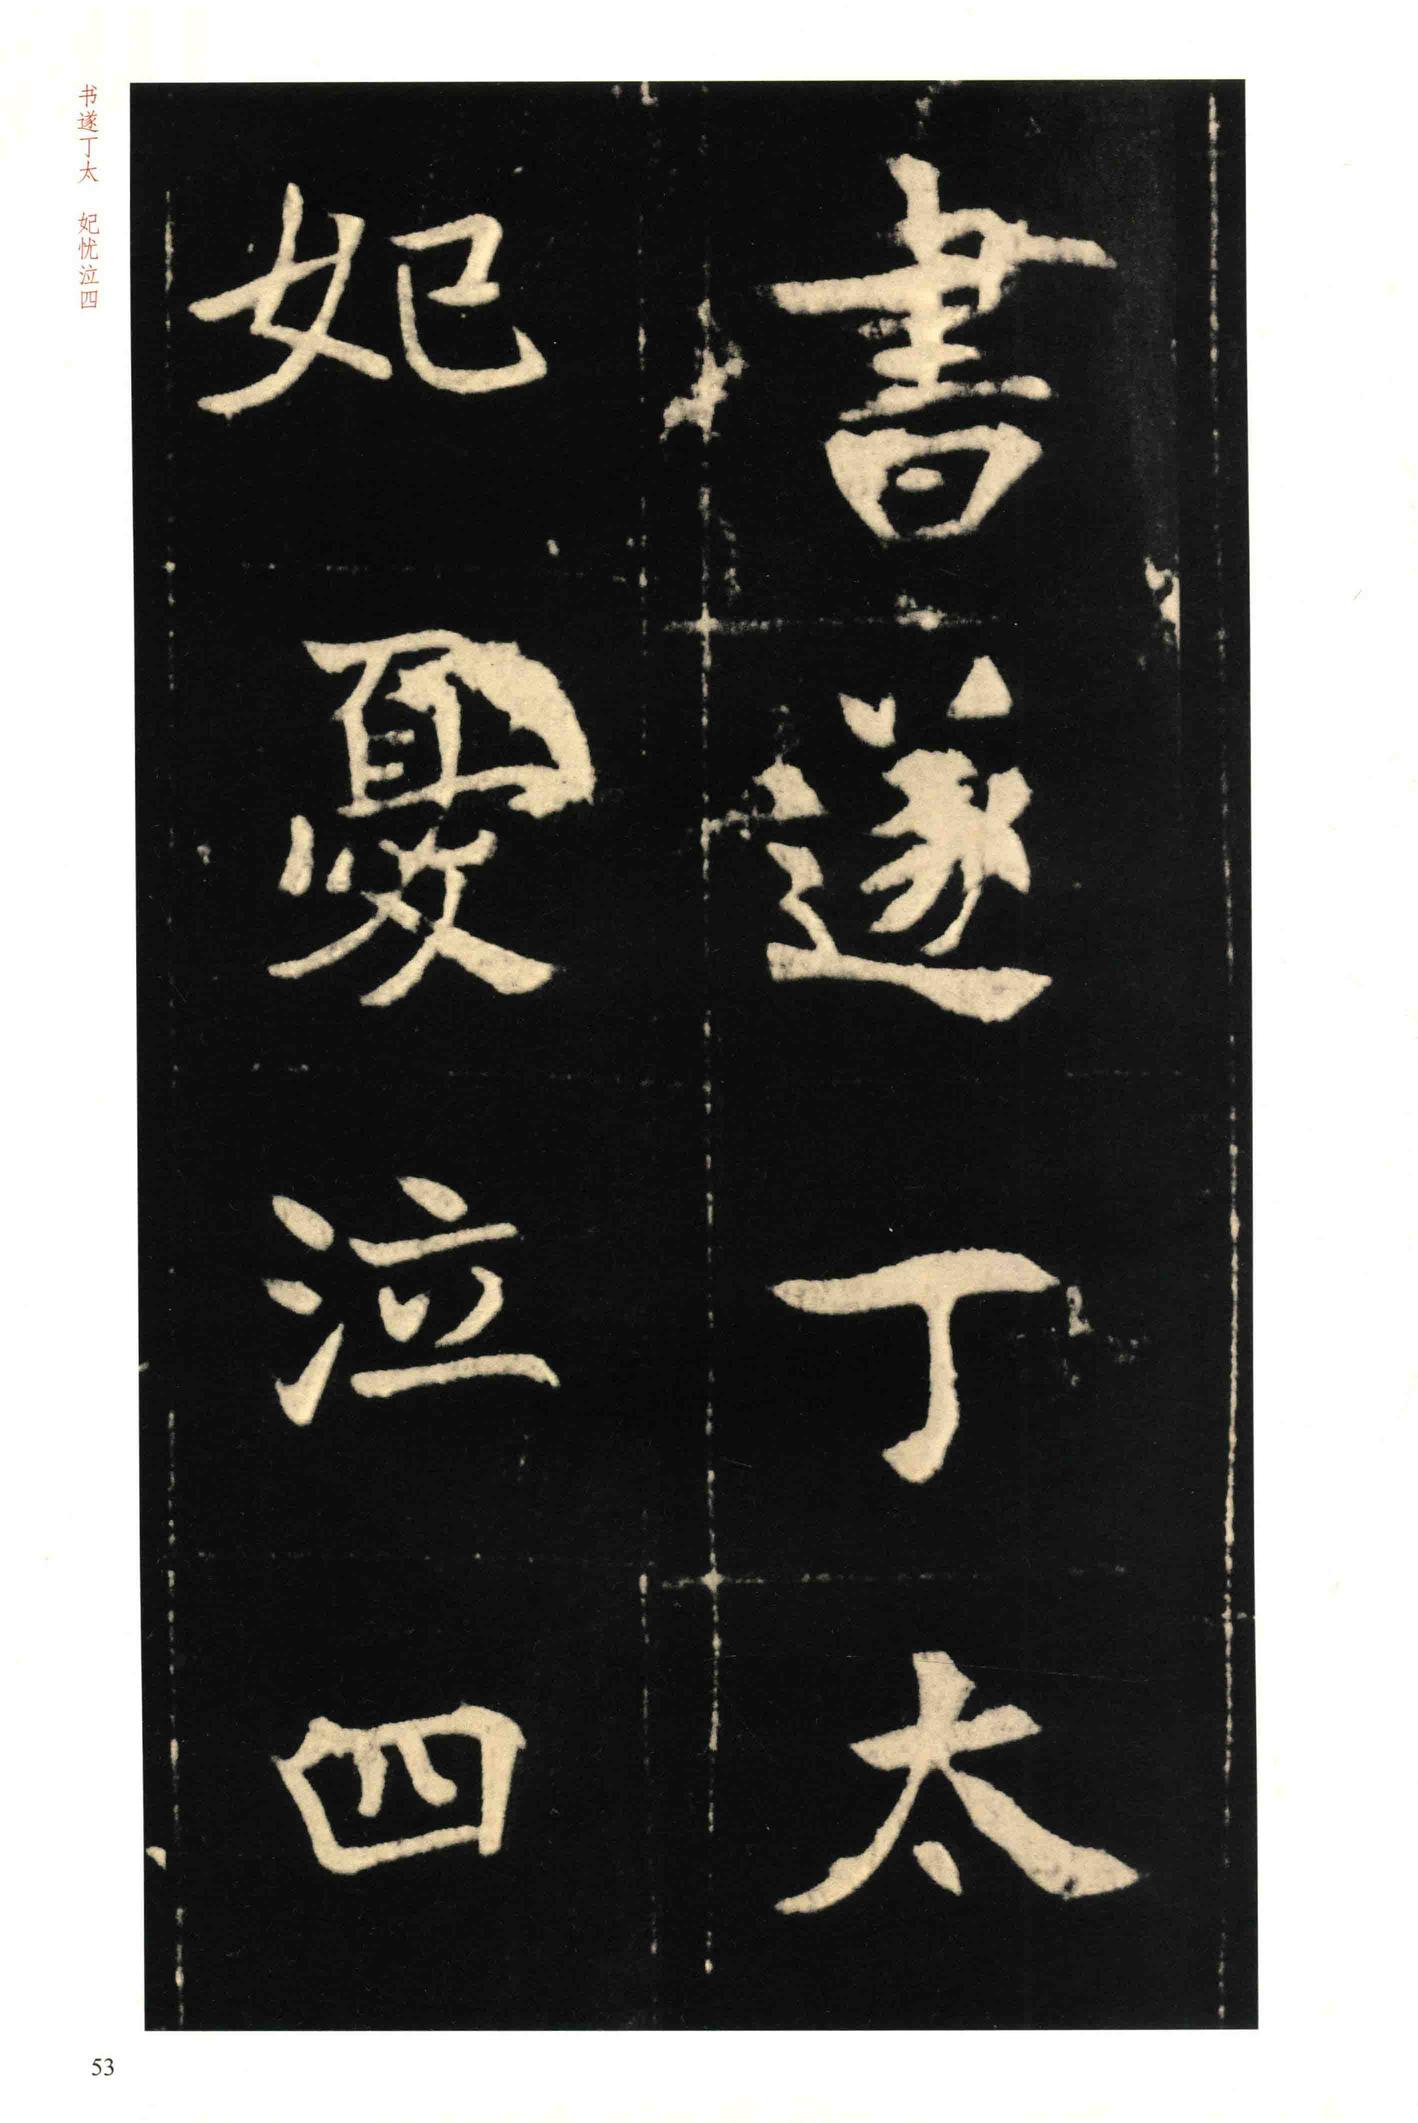 書遂丁太
妃憂泣四
书遂丁太 妃忧泣四
53